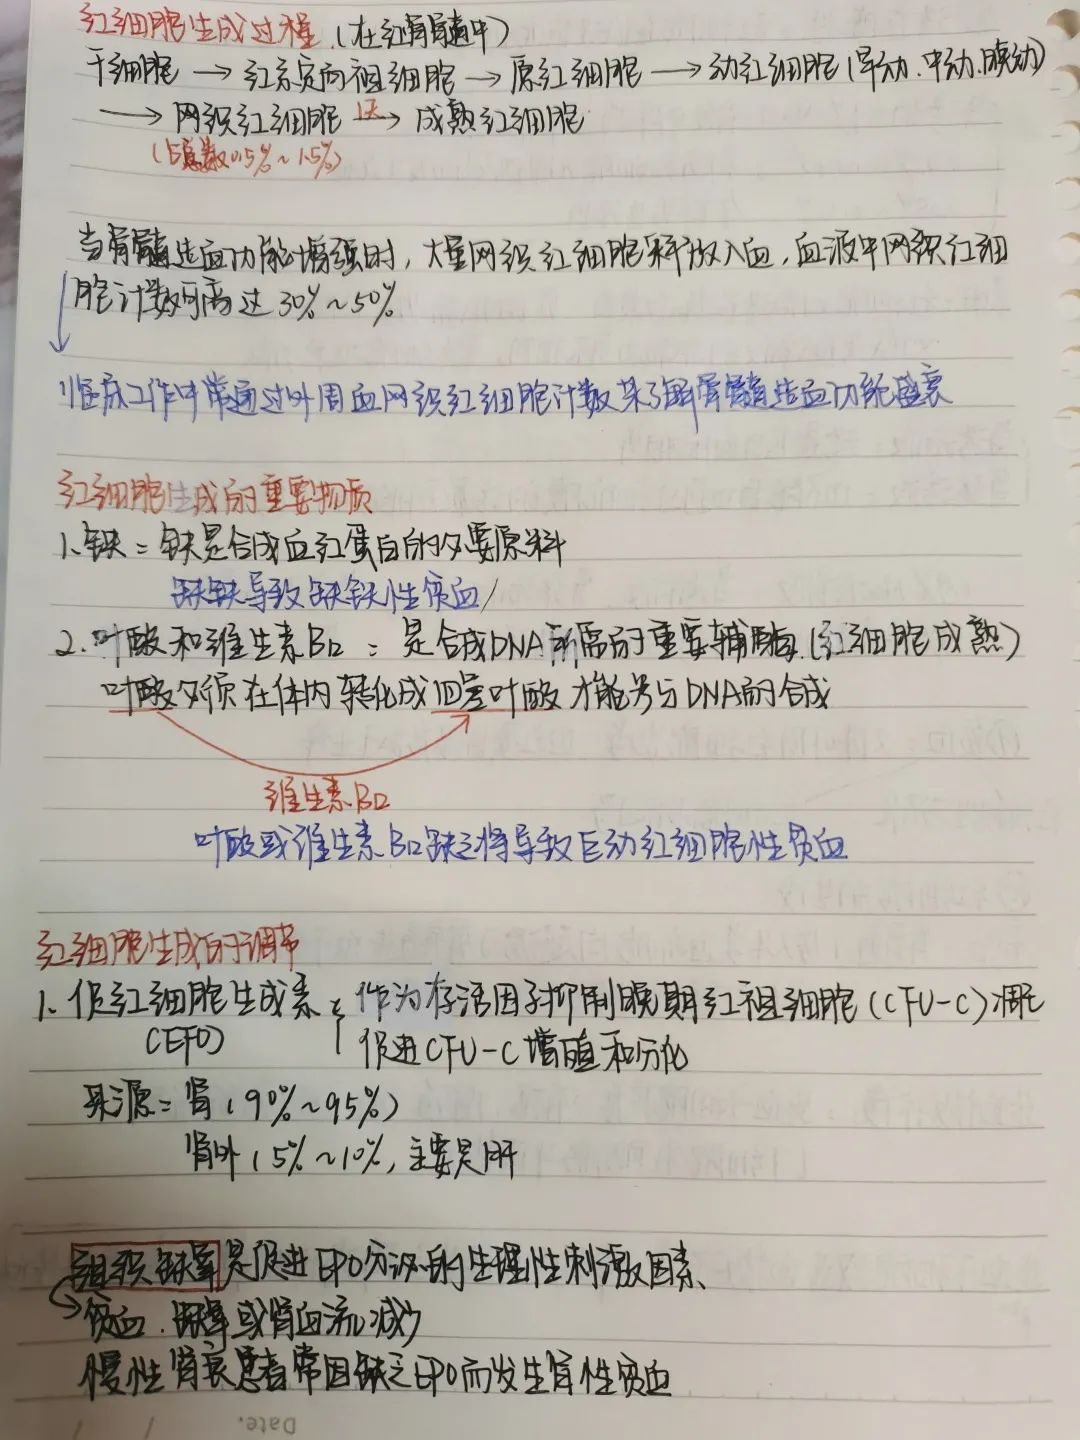 红细胞生成过程（在红骨髓中）
干细胞 → 红系定向祖细胞 → 原红细胞 → 幼红细胞（早幼、中幼、晚幼）
→ 网织红细胞 1天→ 成熟红细胞
（占总数0.5%~1.5%）
当骨髓造血功能增强时，大量网织红细胞释放入血，血液中网织红细
胞计数可高达30%~50%
临床工作中常通过外周血网织红细胞计数来了解骨髓造血功能盛衰
红细胞生成的重要物质
1、铁：铁是合成血红蛋白的必要原料
缺铁导致缺铁性贫血
2、叶酸和维生素B12：是合成DNA所需的重要辅酶（红细胞成熟）
叶酸必须在体内转化成四氢叶酸才能参与DNA的合成
维生素B12
叶酸或维生素B12缺乏将导致巨幼红细胞性贫血
红细胞生成的调节
1、促红细胞生成素：作为存活因子抑制晚期红祖细胞（CFU-C）凋亡
（EPO） 促进CFU-C增殖和分化
来源：肾（90%~95%）
肾外（5%~10%，主要是肝
组织缺氧是促进EPO分泌的生理性刺激因素
贫血、缺氧或肾血流减少
慢性肾衰患者常因缺乏EPO而发生肾性贫血
Date.